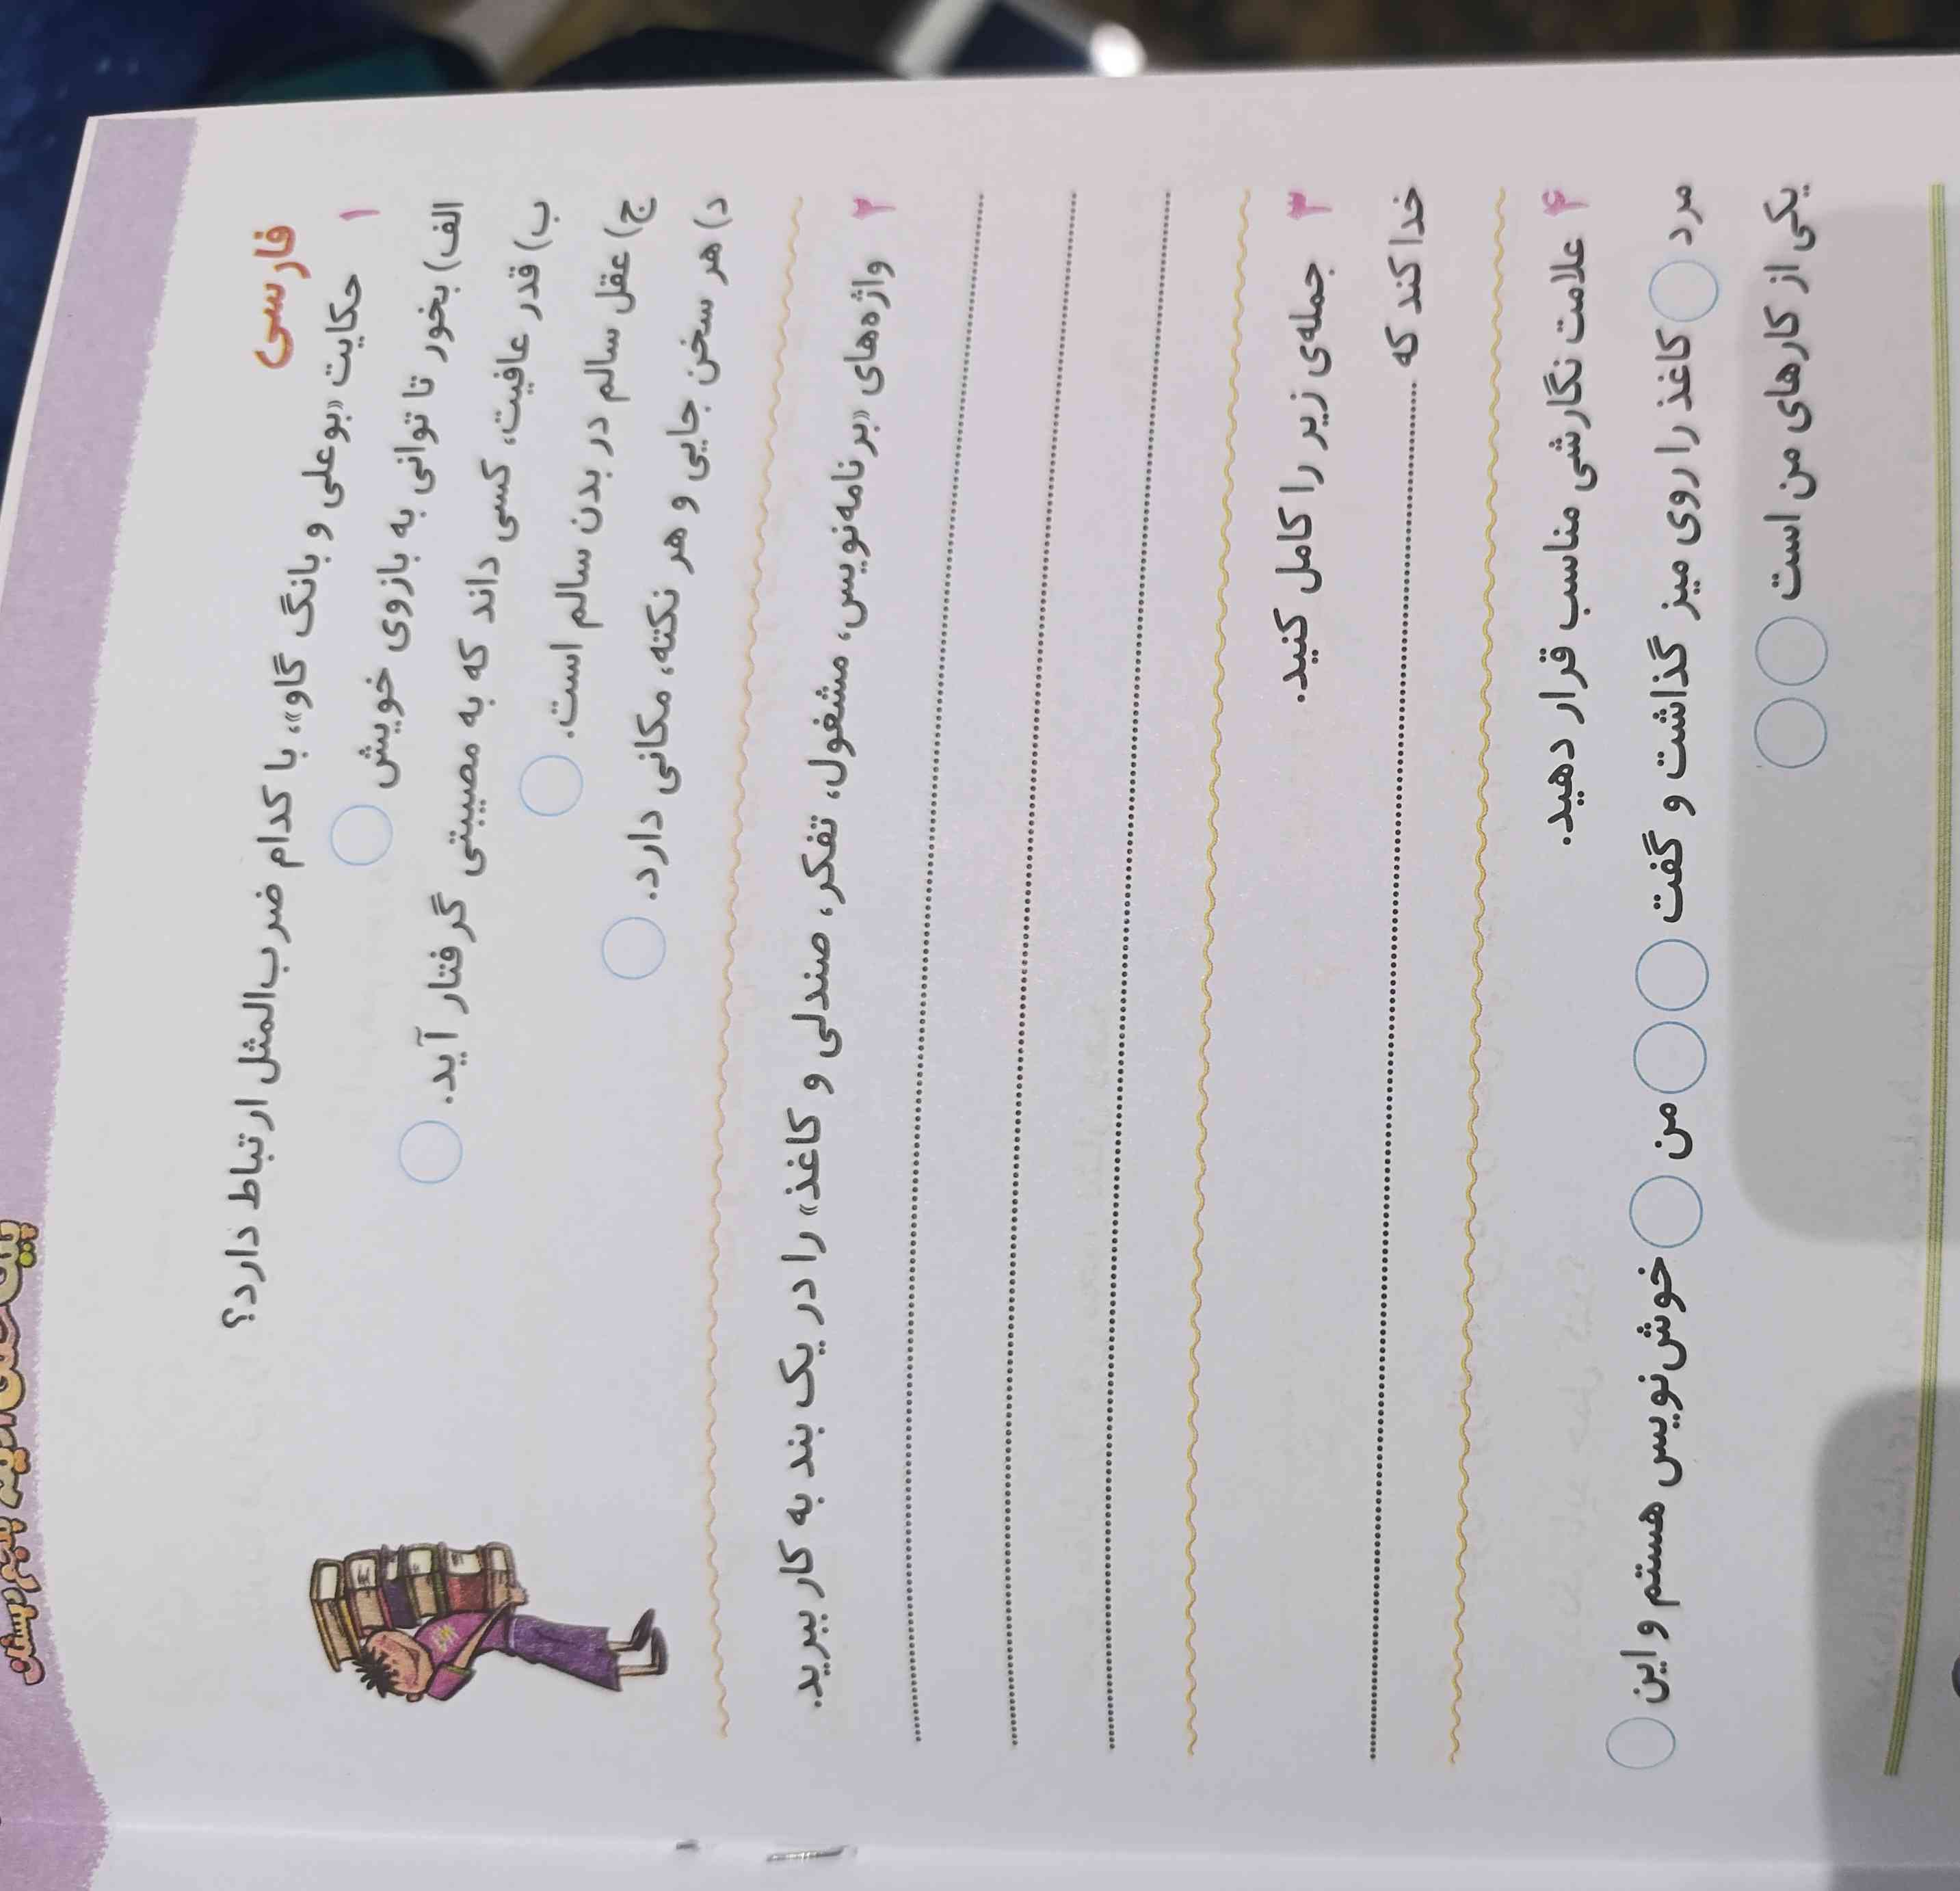 پنجم دبستان
فارسی
۱ حکایت «بوعلی و بانگ گاو»، با کدام ضرب‌المثل ارتباط دارد؟
الف) بخور تا توانی به بازوی خویش
ب) قدر عافیت، کسی داند که به مصیبتی گرفتار آید.
ج) عقل سالم در بدن سالم است.
د) هر سخن جایی و هر نکته، مکانی دارد.
۲ واژه‌های «برنامه‌نویس، مشغول، تفکر، صندلی و کاغذ» را در یک بند به کار ببرید.
۳ جمله‌ی زیر را کامل کنید.
خدا کند که
۴ علامت نگارشی مناسب قرار دهید.
مرد کاغذ را روی میز گذاشت و گفت من خوش‌نویس هستم و این
یکی از کارهای من است